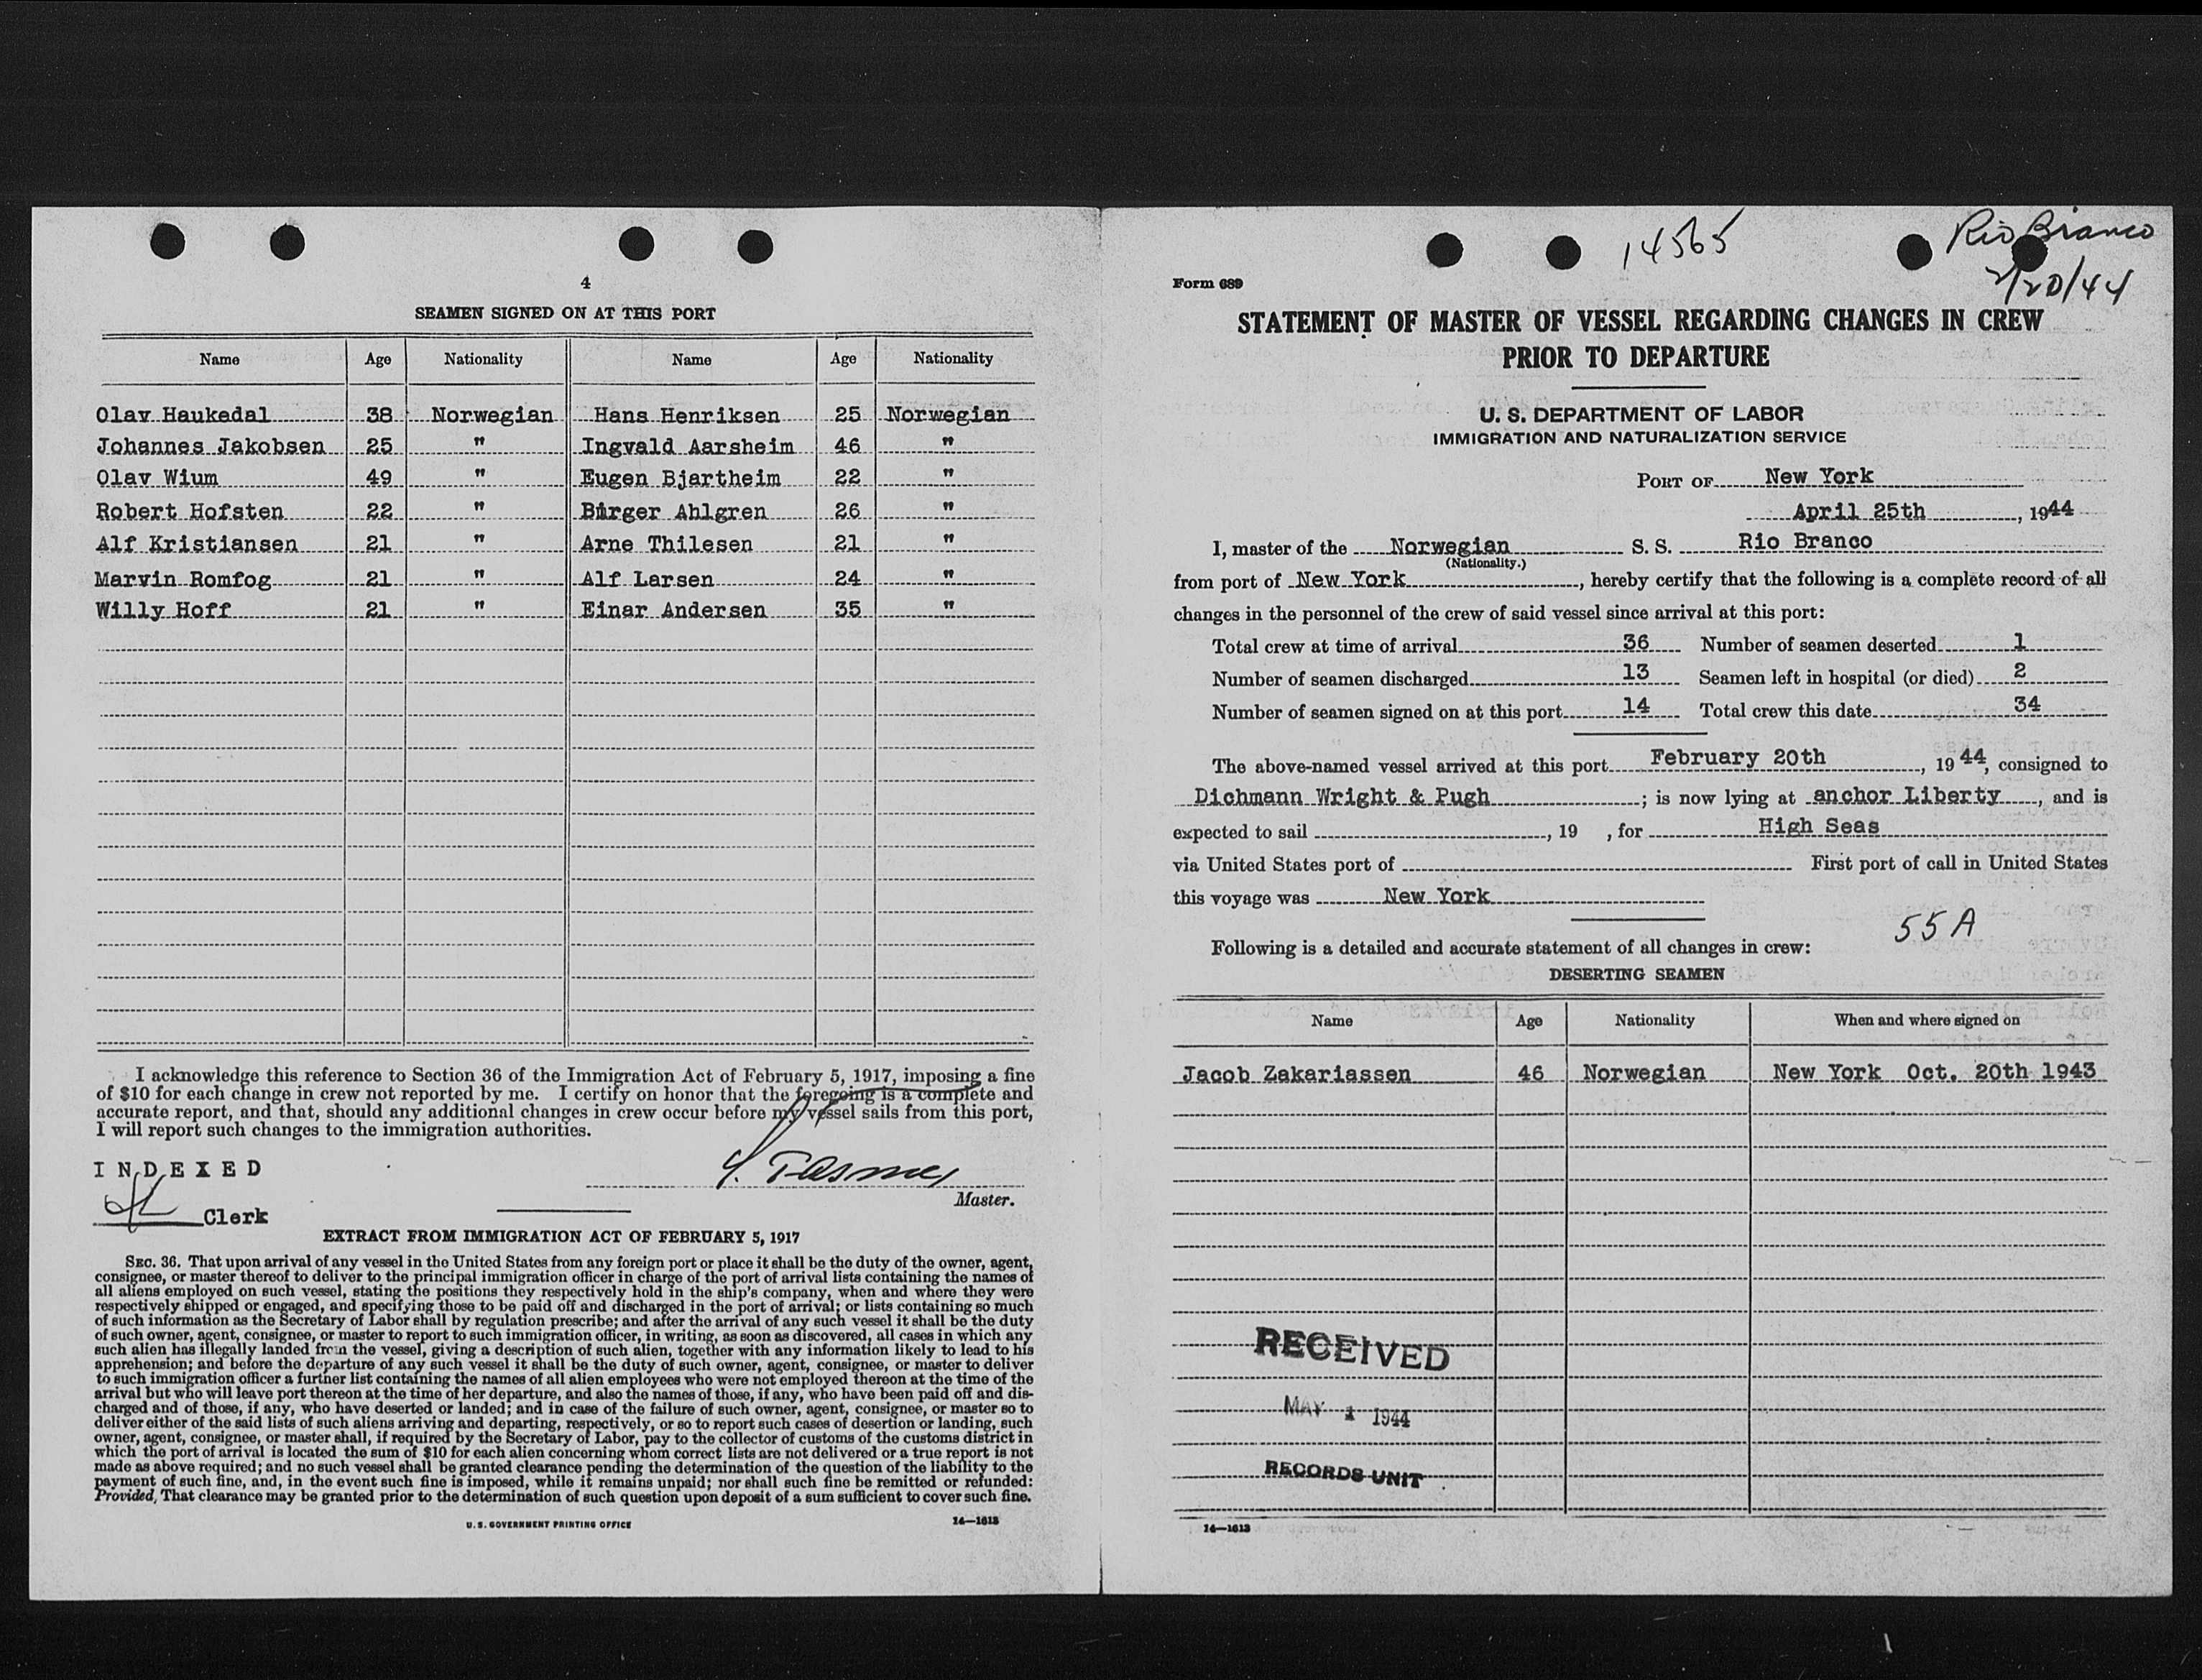 4
SEAMEN SIGNED ON AT THIS PORT
Name Age Nationality Name Age Nationality
Olav Haukedal 38 Norwegian Hans Henriksen 25 Norwegian
Johannes Jakobsen 25 " Ingvald Aarsheim 46 "
Olav Wium 49 " Eugen Bjartheim 22 "
Robert Hofsten 22 " Birger Ahlgren 26 "
Alf Kristiansen 21 " Arne Thilesen 21 "
Marvin Romfog 21 " Alf Larsen 24 "
Willy Hoff 21 " Einar Andersen 35 "
I acknowledge this reference to Section 36 of the Immigration Act of February 5, 1917, imposing a fine
of $10 for each change in crew not reported by me. I certify on honor that the foregoing is a complete and
accurate report, and that, should any additional changes in crew occur before my vessel sails from this port,
I will report such changes to the immigration authorities.
INDEXED
Master.
Clerk
EXTRACT FROM IMMIGRATION ACT OF FEBRUARY 5, 1917
SEC. 36. That upon arrival of any vessel in the United States from any foreign port or place it shall be the duty of the owner, agent,
consignee, or master thereof to deliver to the principal immigration officer in charge of the port of arrival lists containing the names of
all aliens employed on such vessel, stating the positions they respectively hold in the ship's company, when and where they were
respectively shipped or engaged, and specifying those to be paid off and discharged in the port of arrival; or lists containing so much
of such information as the Secretary of Labor shall by regulation prescribe; and after the arrival of any such vessel it shall be the duty
of such owner, agent, consignee, or master to report to such immigration officer, in writing, as soon as discovered, all cases in which any
such alien has illegally landed from the vessel, giving a description of such alien, together with any information likely to lead to his
apprehension; and before the departure of any such vessel it shall be the duty of such owner, agent, consignee, or master to deliver
to such immigration officer a further list containing the names of all alien employees who were not employed thereon at the time of the
arrival but who will leave port thereon at the time of her departure, and also the names of those, if any, who have been paid off and dis-
charged and of those, if any, who have deserted or landed; and in case of the failure of such owner, agent, consignee, or master so to
deliver either of the said lists of such aliens arriving and departing, respectively, or so to report such cases of desertion or landing, such
owner, agent, consignee, or master shall, if required by the Secretary of Labor, pay to the collector of customs of the customs district in
which the port of arrival is located the sum of $10 for each alien concerning whom correct lists are not delivered or a true report is not
made as above required; and no such vessel shall be granted clearance pending the determination of the question of the liability to the
payment of such fine, and, in the event such fine is imposed, while it remains unpaid; nor shall such fine be remitted or refunded:
Provided, That clearance may be granted prior to the determination of such question upon deposit of a sum sufficient to cover such fine.
U. S. GOVERNMENT PRINTING OFFICE 14—1613
14565
Rio Branco
2/20/44
Form 689
STATEMENT OF MASTER OF VESSEL REGARDING CHANGES IN CREW
PRIOR TO DEPARTURE
U. S. DEPARTMENT OF LABOR
IMMIGRATION AND NATURALIZATION SERVICE
PORT OF New York
April 25th, 1944
I, master of the Norwegian S. S. Rio Branco
(Nationality.)
from port of New York, hereby certify that the following is a complete record of all
changes in the personnel of the crew of said vessel since arrival at this port:
Total crew at time of arrival 36 Number of seamen deserted 1
Number of seamen discharged 13 Seamen left in hospital (or died) 2
Number of seamen signed on at this port 14 Total crew this date 34
The above-named vessel arrived at this port February 20th, 19 44, consigned to
Dichmann Wright & Pugh; is now lying at anchor Liberty, and is
expected to sail , 19 , for High Seas
via United States port of First port of call in United States
this voyage was New York
55A
Following is a detailed and accurate statement of all changes in crew:
DESERTING SEAMEN
Name Age Nationality When and where signed on
Jacob Zakariassen 46 Norwegian New York Oct. 20th 1943
RECEIVED
MAY 1 1944
RECORDS UNIT
14—1613